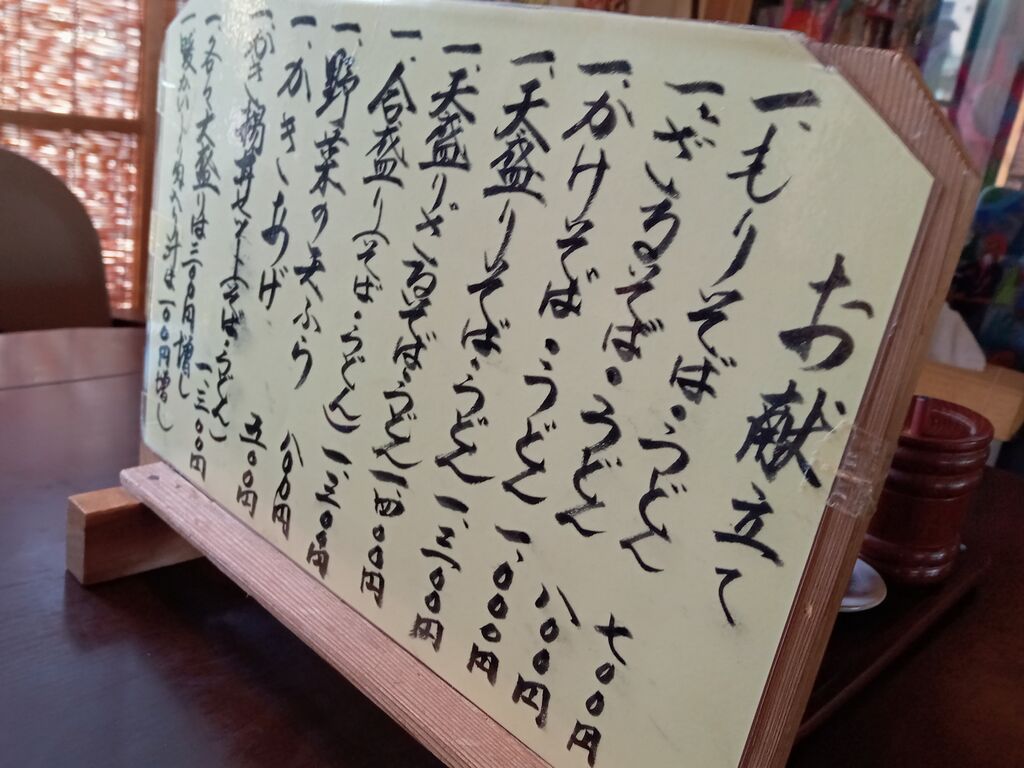 お献立て
一、もりそば・うどん 七〇〇円
一、ざるそば・うどん 八〇〇円
一、かけそば・うどん 一、〇〇〇円
一、天盛りそば・うどん 一、三〇〇円
一、天盛りざるそば・うどん 一、四〇〇円
一、合盛り(そば・うどん) 一、三〇〇円
一、野菜の天ぷら 八〇〇円
一、かきあげ 五〇〇円
一、かき揚丼セット(そば・うどん) 一三〇〇円
一、各々大盛りは三〇〇円増し
一、暖かい 汁は一〇〇円増し